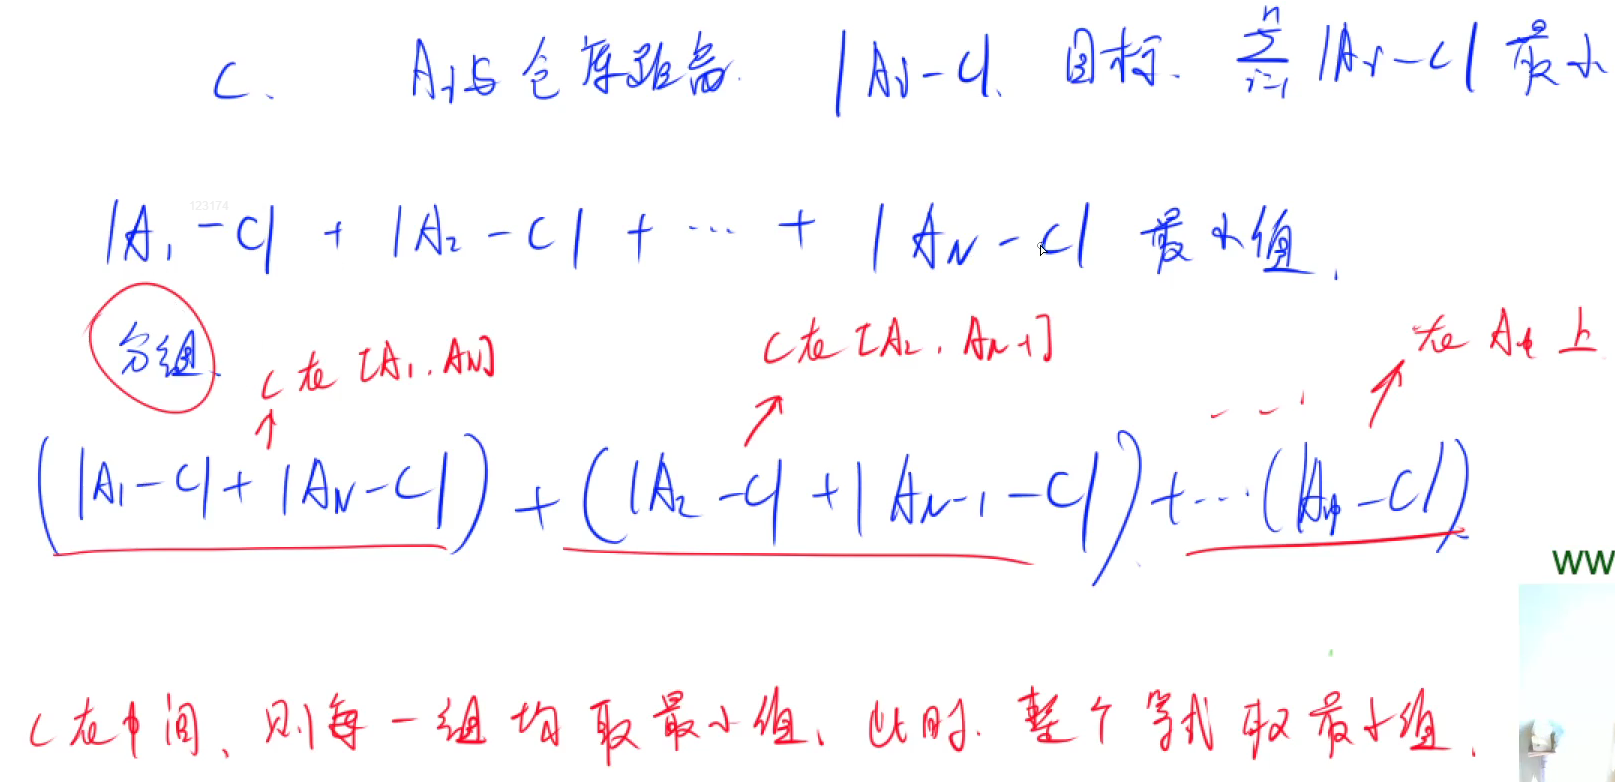 C. Ai与仓库距离 |Ai-C|. 目标. ∑ⁿᵢ₌₁ |Ai-C| 最小
123174
|A₁-C| + |A₂-C| + … + |A_N-C| 最小值.
分组. C在[A₁, A_N] C在[A₂, A_{N-1}] 在A中上
(|A₁-C|+|A_N-C|) + (|A₂-C|+|A_{N-1}-C|)+…(|A中-C|)
ww
C在中间、则每一组均取最小值、此时. 整个等式取最小值.